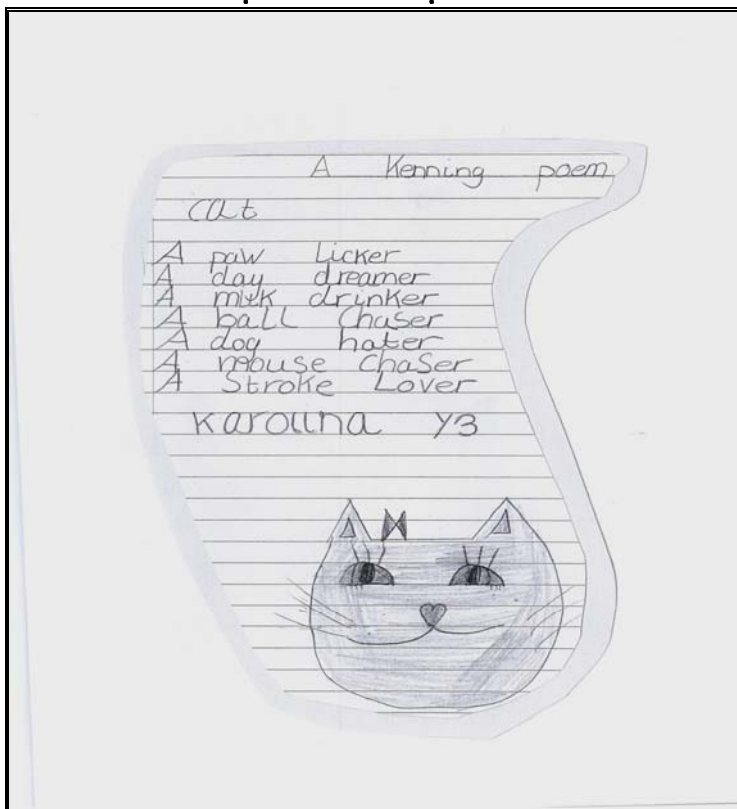 A Kenning poem
cat
A paw Licker
A day dreamer
A milk drinker
A ball Chaser
A dog hater
A mouse Chaser
A Stroke Lover
Karolina Y3